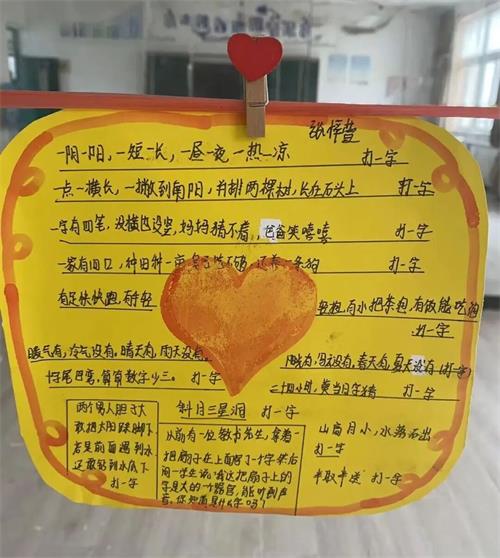 一阴一阳，一短一长，一昼一夜一热一凉 打一字
一点一横长，一撇到南阳，并排两棵树，长在石头上 打一字
一字有四笔，没横也没竖，妈妈猜不着，爸爸笑嘻嘻 打一字
一家有四口，种田种一亩，还养一条狗 打一字
有足快快跑，有手轻
有火把茶泡，有饭能吃饱
打一字
暖气有，冷气没有。晴天有，雨天没有。
没有，春天有，夏天没有（打一字）
字尾巴弯，算算数字少三。 打一字
二十四小时，莫当日字猜 打一字
两个男人胆子大
敢把太阳踩脚下
若是前面遇到水
还敢
打一字
斜月三星洞 打一字
从前有一位教书先生，拿着一
把扇子在上面写了一个字，然后
问一学生说：我这把扇子上的
字是大的一个器官，能听到声
音，你知道是什么字吗？
山高月小，水落石出
打一字
半取半送 打一字